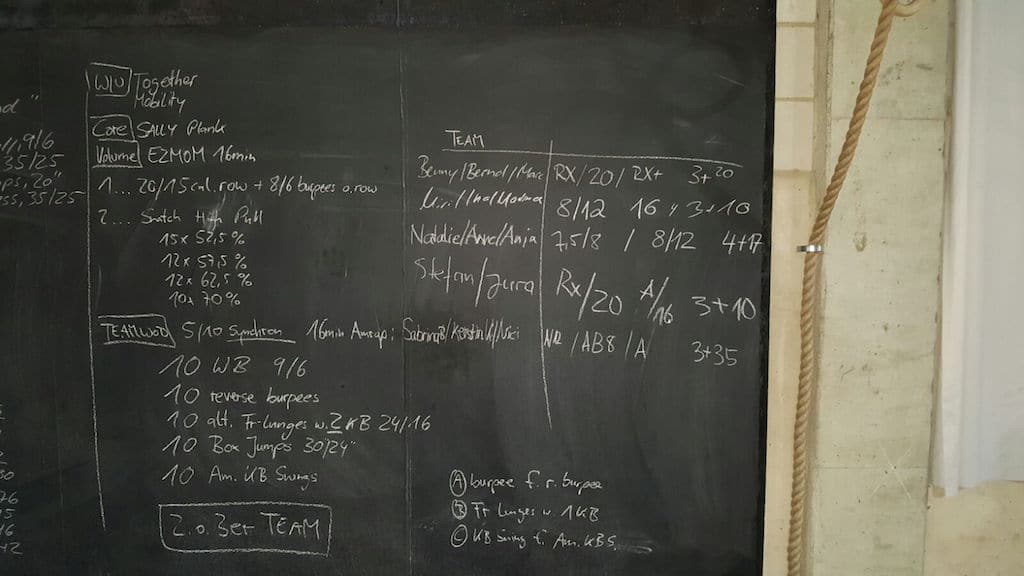 W/U Together
Mobility
Core SALLY Plank
Volume E2MOM 16min
1... 20/15 cal. row + 8/6 burpees o. row
2.... Snatch High Pull
15x 52,5 %
12x 57,5 %
12x 62,5 %
10x 70 %
TEAMWOD 5/10 Synchron 16min Amrap;
10 WB 9/6
10 reverse burpees
10 alt. Fr lunges w. 2 KB 24/16
10 Box Jumps 30/24"
10 Am. KB Swings
2. o. 3er TEAM
9/6
35/25
20"
35/25
TEAM
Benny/Bernd/Marc RX/20/ RX+ 3+20
8/12 16 3+10
Natalie/Anne/Anja 7,5/8 / 8/12 4+17
Stefan/ Rx/20 A/16 3+10
/AB8/A 3+35
A burpee f. r. burpee
B Fr lunges w. 1 KB
C KB Swing f. Am. KBS.